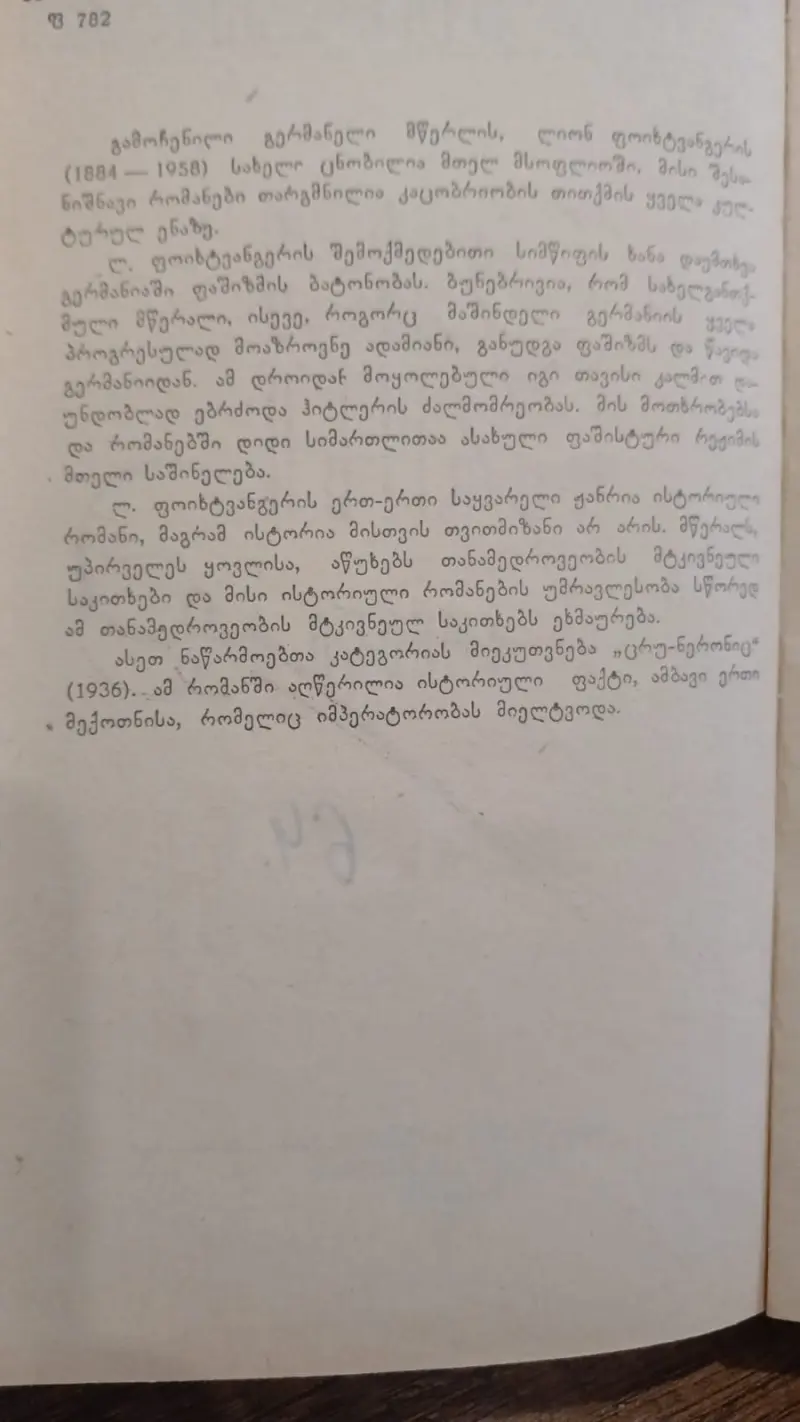 ფ 782
გამოჩენილი გერმანელი მწერლის, ლიონ ფოიხტვანგერის
(1884 — 1958) სახელი ცნობილია მთელ მსოფლიოში, მისი შესა-
ნიშნავი რომანები თარგმნილია კაცობრიობის თითქმის ყველა კულ-
ტურულ ენაზე.
ლ. ფოიხტვანგერის შემოქმედებითი სიმწიფის ხანა დაემთხვა
გერმანიაში ფაშიზმის ბატონობას. ბუნებრივია, რომ სახელგანთქ-
მული მწერალი, ისევე, როგორც მაშინდელი გერმანიის ყველა
პროგრესულად მოაზროვნე ადამიანი, განუდგა ფაშიზმს და წავიდა
გერმანიიდან. ამ დროიდან მოყოლებული იგი თავისი კალმით და-
უნდობლად ებრძოდა ჰიტლერის ძალმომრეობას. მის მოთხრობებსა
და რომანებში დიდი სიმართლითაა ასახული ფაშისტური რეჟიმის
მთელი საშინელება.
ლ. ფოიხტვანგერის ერთ-ერთი საყვარელი ჟანრია ისტორიული
რომანი, მაგრამ ისტორია მისთვის თვითმიზანი არ არის. მწერალს,
უპირველეს ყოვლისა, აწუხებს თანამედროვეობის მტკივნეული
საკითხები და მისი ისტორიული რომანების უმრავლესობა სწორედ
ამ თანამედროვეობის მტკივნეულ საკითხებს ეხმაურება.
ასეთ ნაწარმოებთა კატეგორიას მიეკუთვნება „ცრუ-ნერონიც“
(1936). ამ რომანში აღწერილია ისტორიული ფაქტი, ამბავი ერთი
მექოთნისა, რომელიც იმპერატორობას მიელტვოდა.